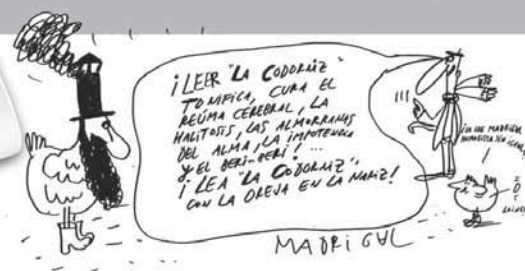 ¡LEER "LA CODORNIZ"
TONIFICA, CURA EL
REÚMA CEREBRAL, LA
HALITOSIS, LAS ALMORRANAS
DEL ALMA, LA IMPOTENCIA
Y EL BERI-BERI!...
¡LEA "LA CODORNIZ",
CON LA OREJA EN LA NARIZ!
MADRIGAL